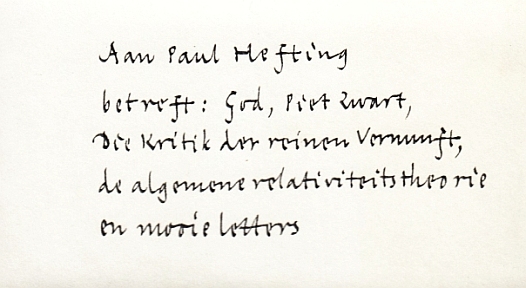 Aan Paul Hefting
betreft: God, Piet Zwart,
Die Kritik der reinen Vernunft,
de algemene relativiteitstheorie
en mooie letters